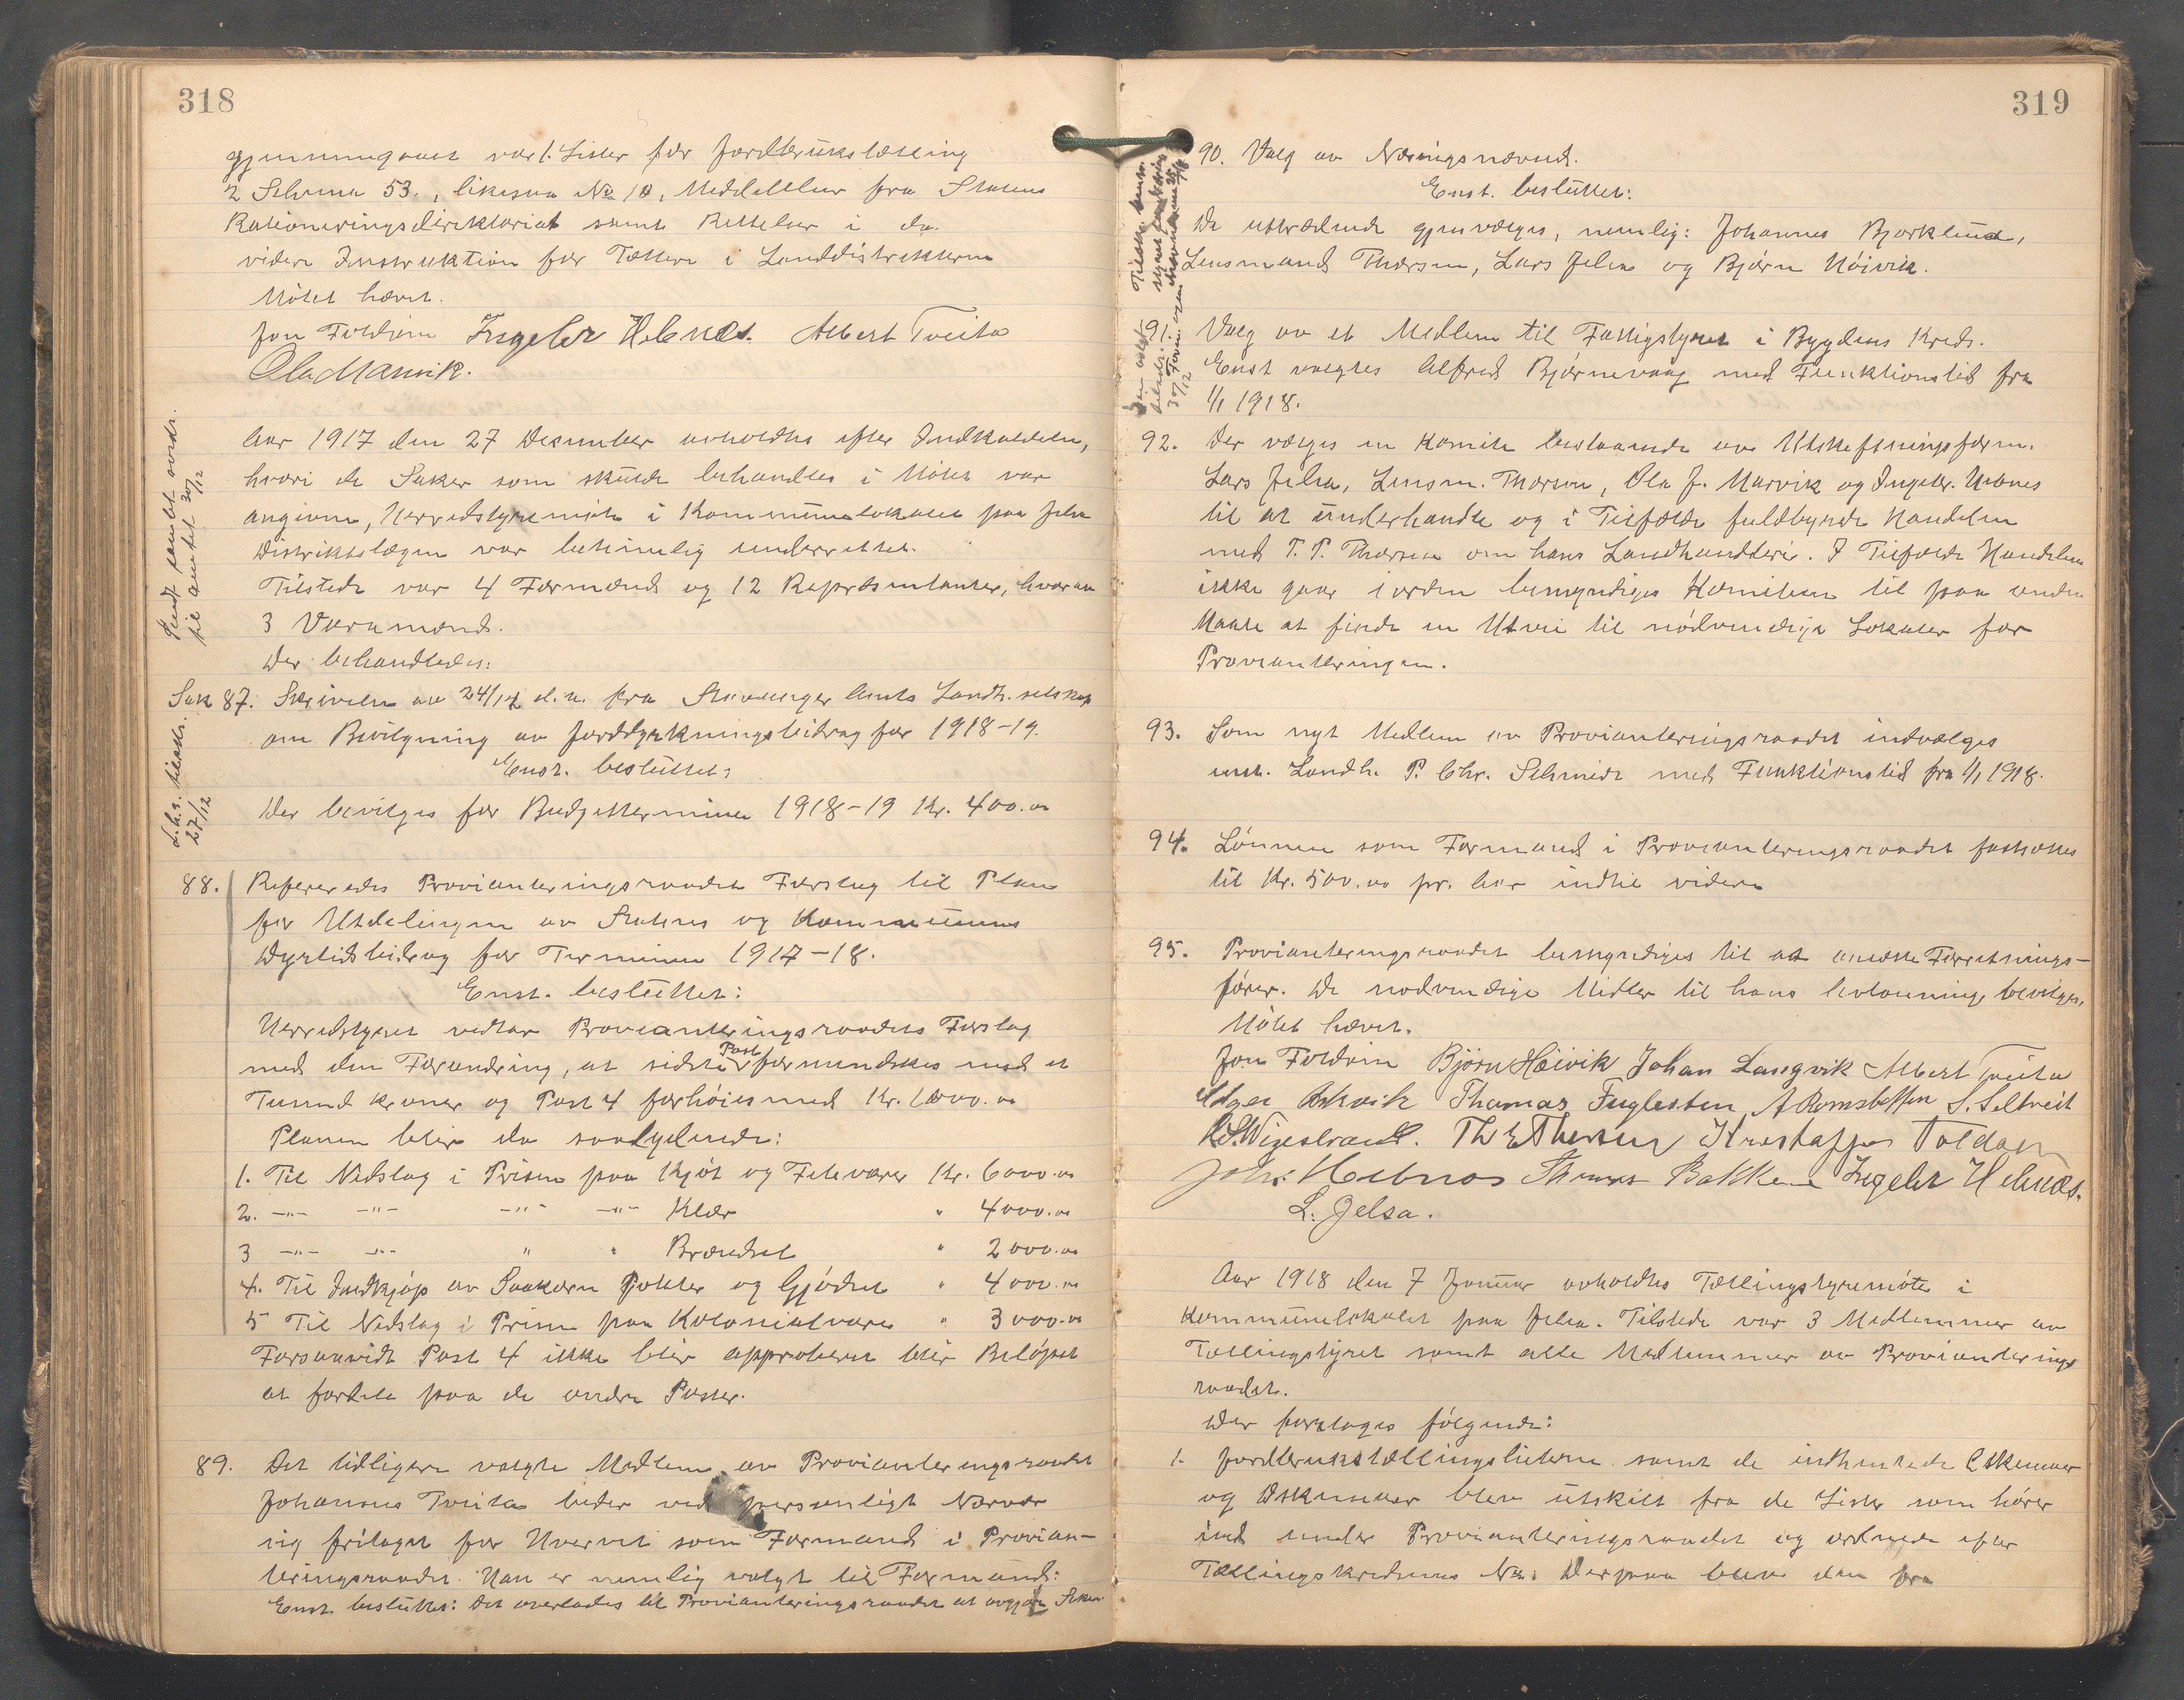 318
gjennemgaaet var 1. Lister for Jordbrukstælling
2 Schema 53., likesaa No 10, Meddelelser fra Statens
Rationeringsdirektoriat samt Rettelser i do.
videre Instruktion for Tællere i Landdistrikterne
Møtet hævet.
Jon Foldøen Ingebr Hebnes. Albert Tveita
Ola Marvik.
Sendt samlet avskr.
til amtet 30/12
Aar 1917 den 27 Desember avholdtes efter Indkaldelse,
hvori de Saker som skulde behandles i Møtet var
angivne, Herredstyremøte i Kommunelokalet paa Jelsa
Distriktslægen var betimelig underrettet.
Tilstede var 4 Formænd og 12 Repræsentanter, hvorav
3 Varamænd.
Der behandledes:
Sak 87. Skrivelse av 24/12 d.a. fra Stavanger Amts Landh. selskap
om Bevilgning av Jorddyrkningsbidrag for 1918-19.
Enst. besluttet:
L.h.s. tilskr.
27/12
Der bevilges for Budgetterminen 1918-19 Kr. 400.00
88. Refereredes Provianteringsraadets Forslag til Plan
for Utdelingen av Statens og Kommunens
Dyrtidsbidrag for Terminen 1917-18.
Enst. besluttet:
Herredstyret vedtar Provianteringsraadets Forslag
med den Forandring, at sidste Post formindskes med et
Tusend kroner og Post 4 forhøies med Kr. 1000.00
Planen blir da saalydende:
1. Til Nedslag i Prisen paa Kjøt og Fetevarer Kr. 6000.00
2. -"- -"- -"- -"- Klær " 4000.00
3 -"- -"- " " Brændsel " 2000.00
4. Til Indkjøp av Saakorn Poteter og Gjødsel " 4000.00
5 Til Nedslag i Prisen paa Kolonialvarer " 3000.00
Forsaavidt Post 4 ikke blir approberet blir Beløpet
at fordele paa de andre Poster.
89. Det tidligere valgte Medlem av Provianteringsraadet
Johannes Tveita beder ved personligt Nærvær
sig fritaget for Hvervet som Formand i Provian-
teringsraadet. Han er nemlig valgt til Formand:
Enst. besluttet: Det overlades til Provianteringsraadet at avgjøre Saken
319
90. Valg av Næringsnævnd.
Enst. besluttet:
De uttrædende gjenvælges, nemlig: Johannes Bjorklund,
Lensmand Thorsen, Lars Jelsa og Bjørn Höivik.
91. Valg av et Medlem til Fattigstyret i Bygdens Kreds.
Enst valgtes Alfred Bjørnevaag med Funktionstid fra
1/1 1918.
92. Der vælges en Komite bestaaende av Utskiftningsform.
Lars Jelsa, Lensm. Thorsen, Ola J. Marvik og Ingebr. Hebnes
til at underhandle og i Tilfælde fuldbyrde Handelen
med T. T. Thorsen om hans Landhandleri. I Tilfælde Handelen
ikke gaar iorden bemyndiges Komiteen til paa anden
Maate at finde en Utvei til nödvendige Lokaler for
Provianteringen.
93. Som nyt Medlem av Provianteringsraadet indvælges
enst. Landh. P. Chr. Schmidt med Funktionstid fra 1/1 1918.
94. Lönnen som Formand i Provianteringsraadet fastsættes
til Kr. 500.00 pr. Aar indtil videre
95. Provianteringsraadet bemyndiges til at ansætte Forretnings-
fører. De nødvendige Midler til hans Avlønning bevilges.
Møtet hævet.
Jon Foldøen Björn Höivik Johan Langvik Albert Tveita
Thomas Fuglesten A Romsbotten
Th E Thorsen Kristoffer Foldøen
Joh: Hebnes Thomas Bakken Ingebr Hebnæs.
L. Jelsa.
Aar 1918 den 7 Januar avholdtes Tællingstyremøte i
Kommunelokalet paa Jelsa. Tilstede var 3 Medlemmer av
Tællingstyret samt alle Medlemmer av Provianterings
raadet.
Der foretoges følgende:
1. Jordbrukstællingslisterne samt de indhentede C Skemaer
og D Skemaer blev utskilt fra de Lister som hører
ind under Provianteringsraadet og ordnede efter
Tællingskredsenes No. Derpaa blev den fra